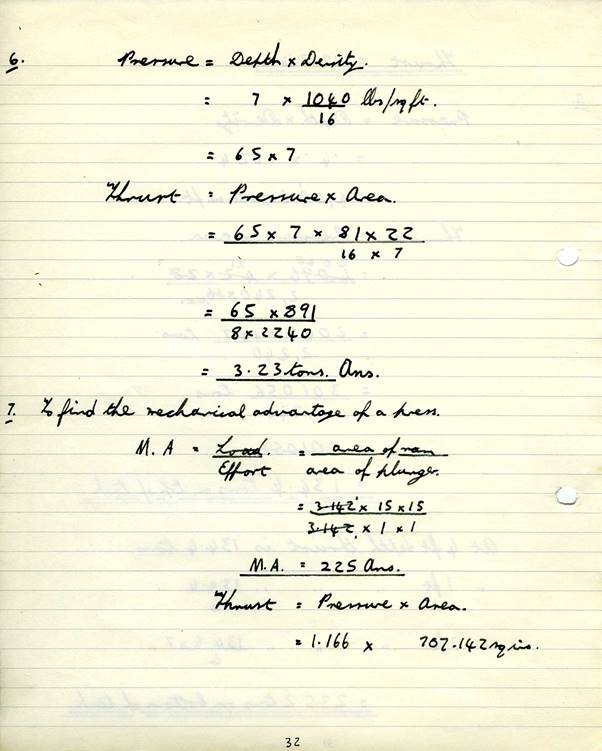 6. Pressure = Depth x Density.
= 7 x 1040/16 lbs/sq ft.
= 65 x 7
Thrust = Pressure x Area.
= 65 x 7 x 81 x 22 / 16 x 7
= 65 x 891 / 8 x 2240
= 3.23 tons. Ans.
7. To find the mechanical advantage of a press.
M.A = Load/Effort = area of ram/area of plunger.
= 3.142 x 15 x 15 / 3.142 x 1 x 1
M.A. = 225 Ans.
Thrust = Pressure x Area.
= 1.166 x 707.142 sq ins.
32